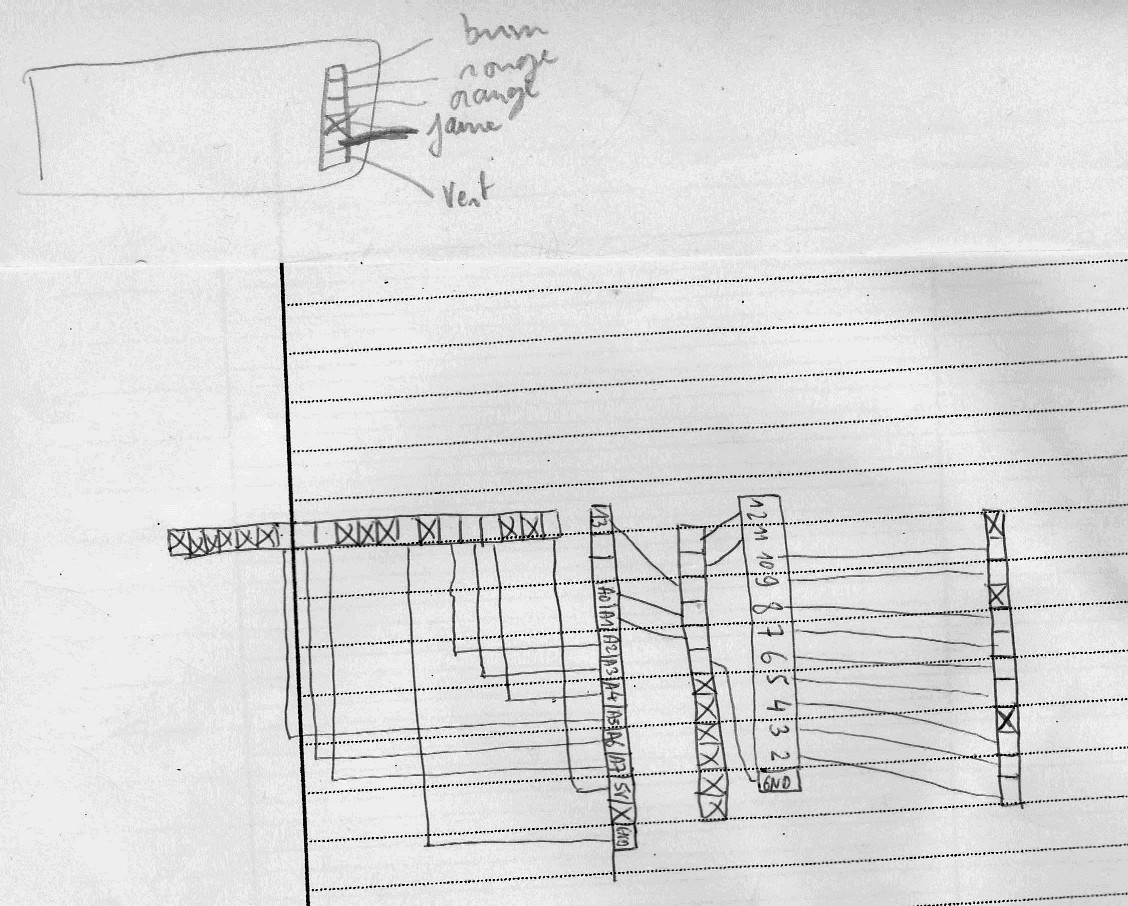 brun
rouge
orange
jaune
vert
13
A0
A1
A2
A3
A4
A5
A6
A7
5V
X
GND
12
11
10
9
8
7
6
5
4
3
2
GND